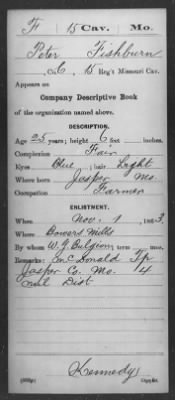 F 15 Cav. Mo.
Peter Fishburn
Co. C, 15 Reg't Missouri Cav.
Appears on
Company Descriptive Book
of the organization named above.
DESCRIPTION.
Age 25 years; height 6 feet inches.
Complexion Fair
Eyes Blue; hair Light
Where born Jasper Mo.
Occupation Farmer
ENLISTMENT.
When Nov. 1, 1863.
Where Bowers Mills
By whom W. J. term mos.
Remarks: McDonald Tp
Jasper Co. Mo. 4
mil Dist
Kennedy
Copyist.